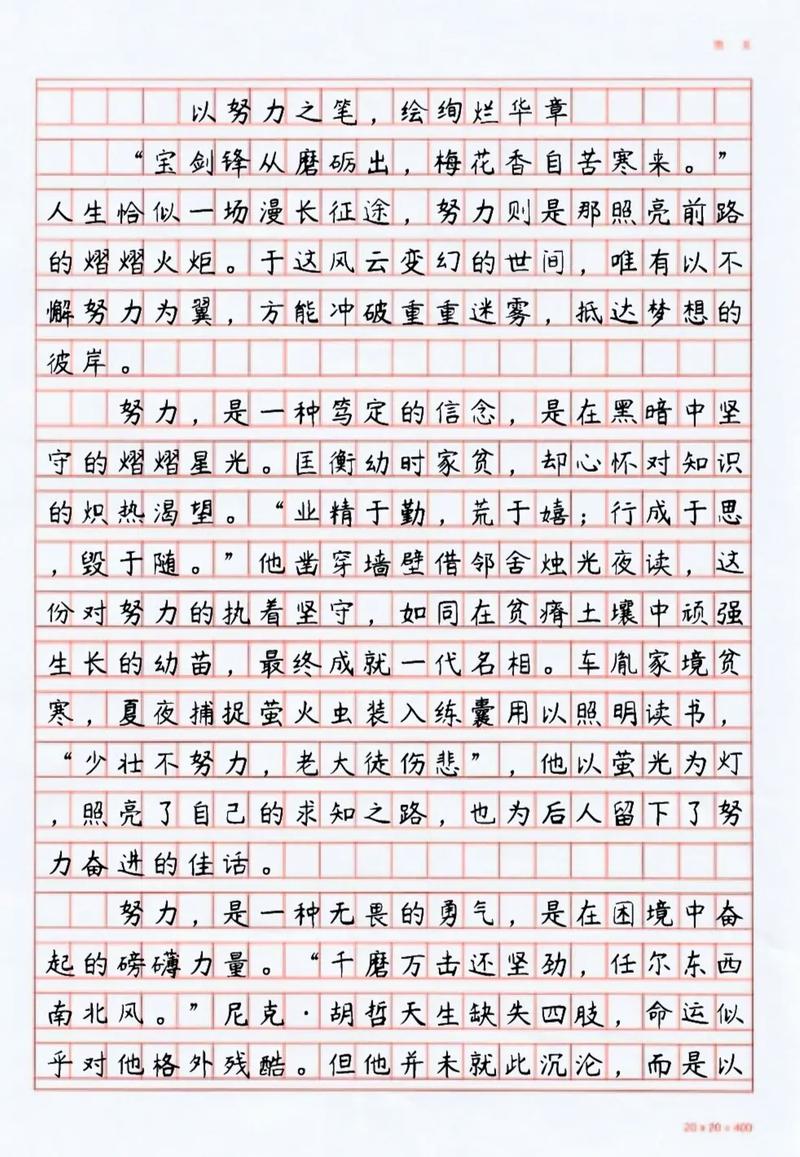 以努力之笔，绘绚烂华章
“宝剑锋从磨砺出，梅花香自苦寒来。”
人生恰似一场漫长征途，努力则是那照亮前路
的熠熠火炬。于这风云变幻的世间，唯有以不
懈努力为翼，方能冲破重重迷雾，抵达梦想的
彼岸。
努力，是一种笃定的信念，是在黑暗中坚
守的熠熠星光。匡衡幼时家贫，却心怀对知识
的炽热渴望。“业精于勤，荒于嬉；行成于思
，毁于随。”他凿穿墙壁借邻舍烛光夜读，这
份对努力的执着坚守，如同在贫瘠土壤中顽强
生长的幼苗，最终成就一代名相。车胤家境贫
寒，夏夜捕捉萤火虫装入练囊用以照明读书，
“少壮不努力，老大徒伤悲”，他以萤光为灯
，照亮了自己的求知之路，也为后人留下了努
力奋进的佳话。
努力，是一种无畏的勇气，是在困境中奋
起的磅礴力量。“千磨万击还坚劲，任尔东西
南北风。”尼克·胡哲天生缺失四肢，命运似
乎对他格外残酷。但他并未就此沉沦，而是以
20×20=400